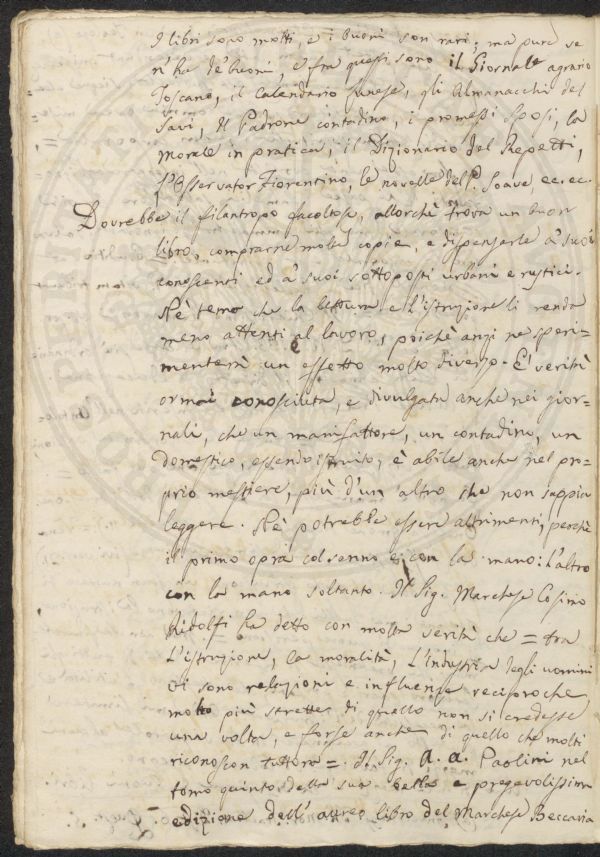 I libri sono molti, e i buoni son rari; ma pure se
n'ha de' buoni, e fra questi sono il Giornale agrario
Toscano, il Calendario Sanese, gli Almanacchi dei
Savi, Il Padrone contadino, i promessi Sposi, la
morale in pratica, il Dizionario del Repetti,
l'Osservator Fiorentino, le novelle del P. Soave, ec. ec.
Dovrebbe il filantropo facoltoso, allorchè trova un buon
libro, comprarne molte copie, e dispensarle a' suoi
conoscenti ed a' suoi sottoposti urbani e rustici.
Nè tema che la lettura e l'istruzione li renda
meno attenti al lavoro, poichè anzi ne speri=
menterà un effetto molto diverso. E' verità
ormai conosciuta, e divulgata anche nei gior=
nali, che un manifattore, un contadino, un
domestico, essendo istruito, è abile anche nel pro=
prio mestiere, più d'un altro che non sappia
leggere. Nè potrebbe essere altrimenti, perchè
il primo opra col senno e con la mano: l'altro
con la mano soltanto. Il Sig. Marchese Cosimo
Ridolfi ha detto con molta verità che = tra
l'istruzione, la moralità, l'industria degli uomini
vi sono relazioni e influenze reciproche
molto più strette di quello non si credesse
una volta, e forse anche di quello che molti
riconoscon tuttora =. Il Sig. A. A. Paolini nel
tomo quinto della sua bella e pregevolissima
edizione dell'aureo libro del Marchese Beccaria